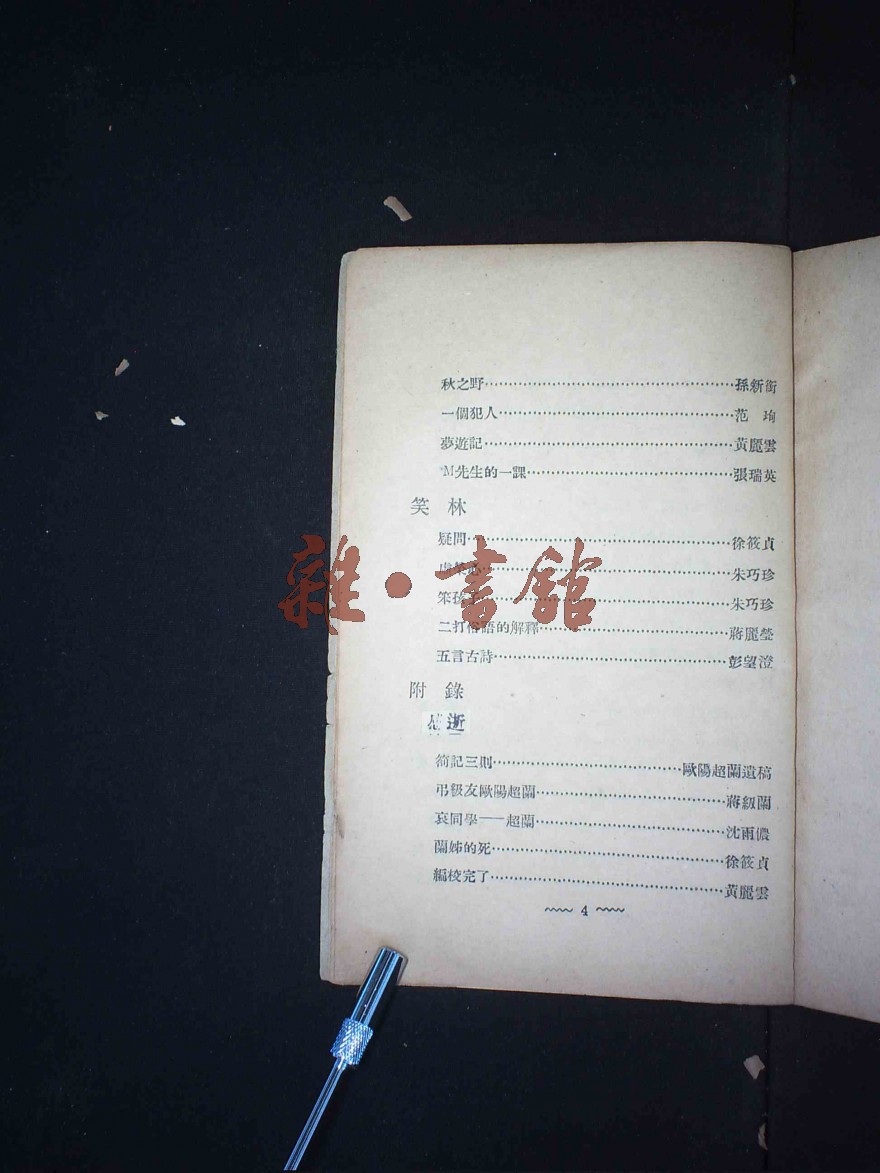 秋之野……孫新銜
一個犯人……范　珣
夢遊記……黃麗雲
M先生的一課……張瑞英
笑　林
疑問……徐筱貞
虛榮心……朱巧珍
笨孩子……朱巧珍
二打俗語的解釋……蔣麗瑩
五言古詩……彭望澄
附　錄
逝
簡記三則……歐陽超蘭遺稿
弔級友歐陽超蘭……蔣紉蘭
哀同學——超蘭……沈雨儂
蘭姊的死……徐筱貞
編校完了……黃麗雲
4
雜・書館